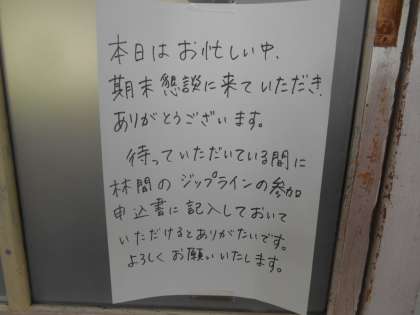 本日はお忙しい中、
期末懇談に来ていただき
ありがとうございます。
待っていただいている間に
林間のジップラインの参加
申込書に記入しておいて
いただけるとありがたいです。
よろしくお願いいたします。